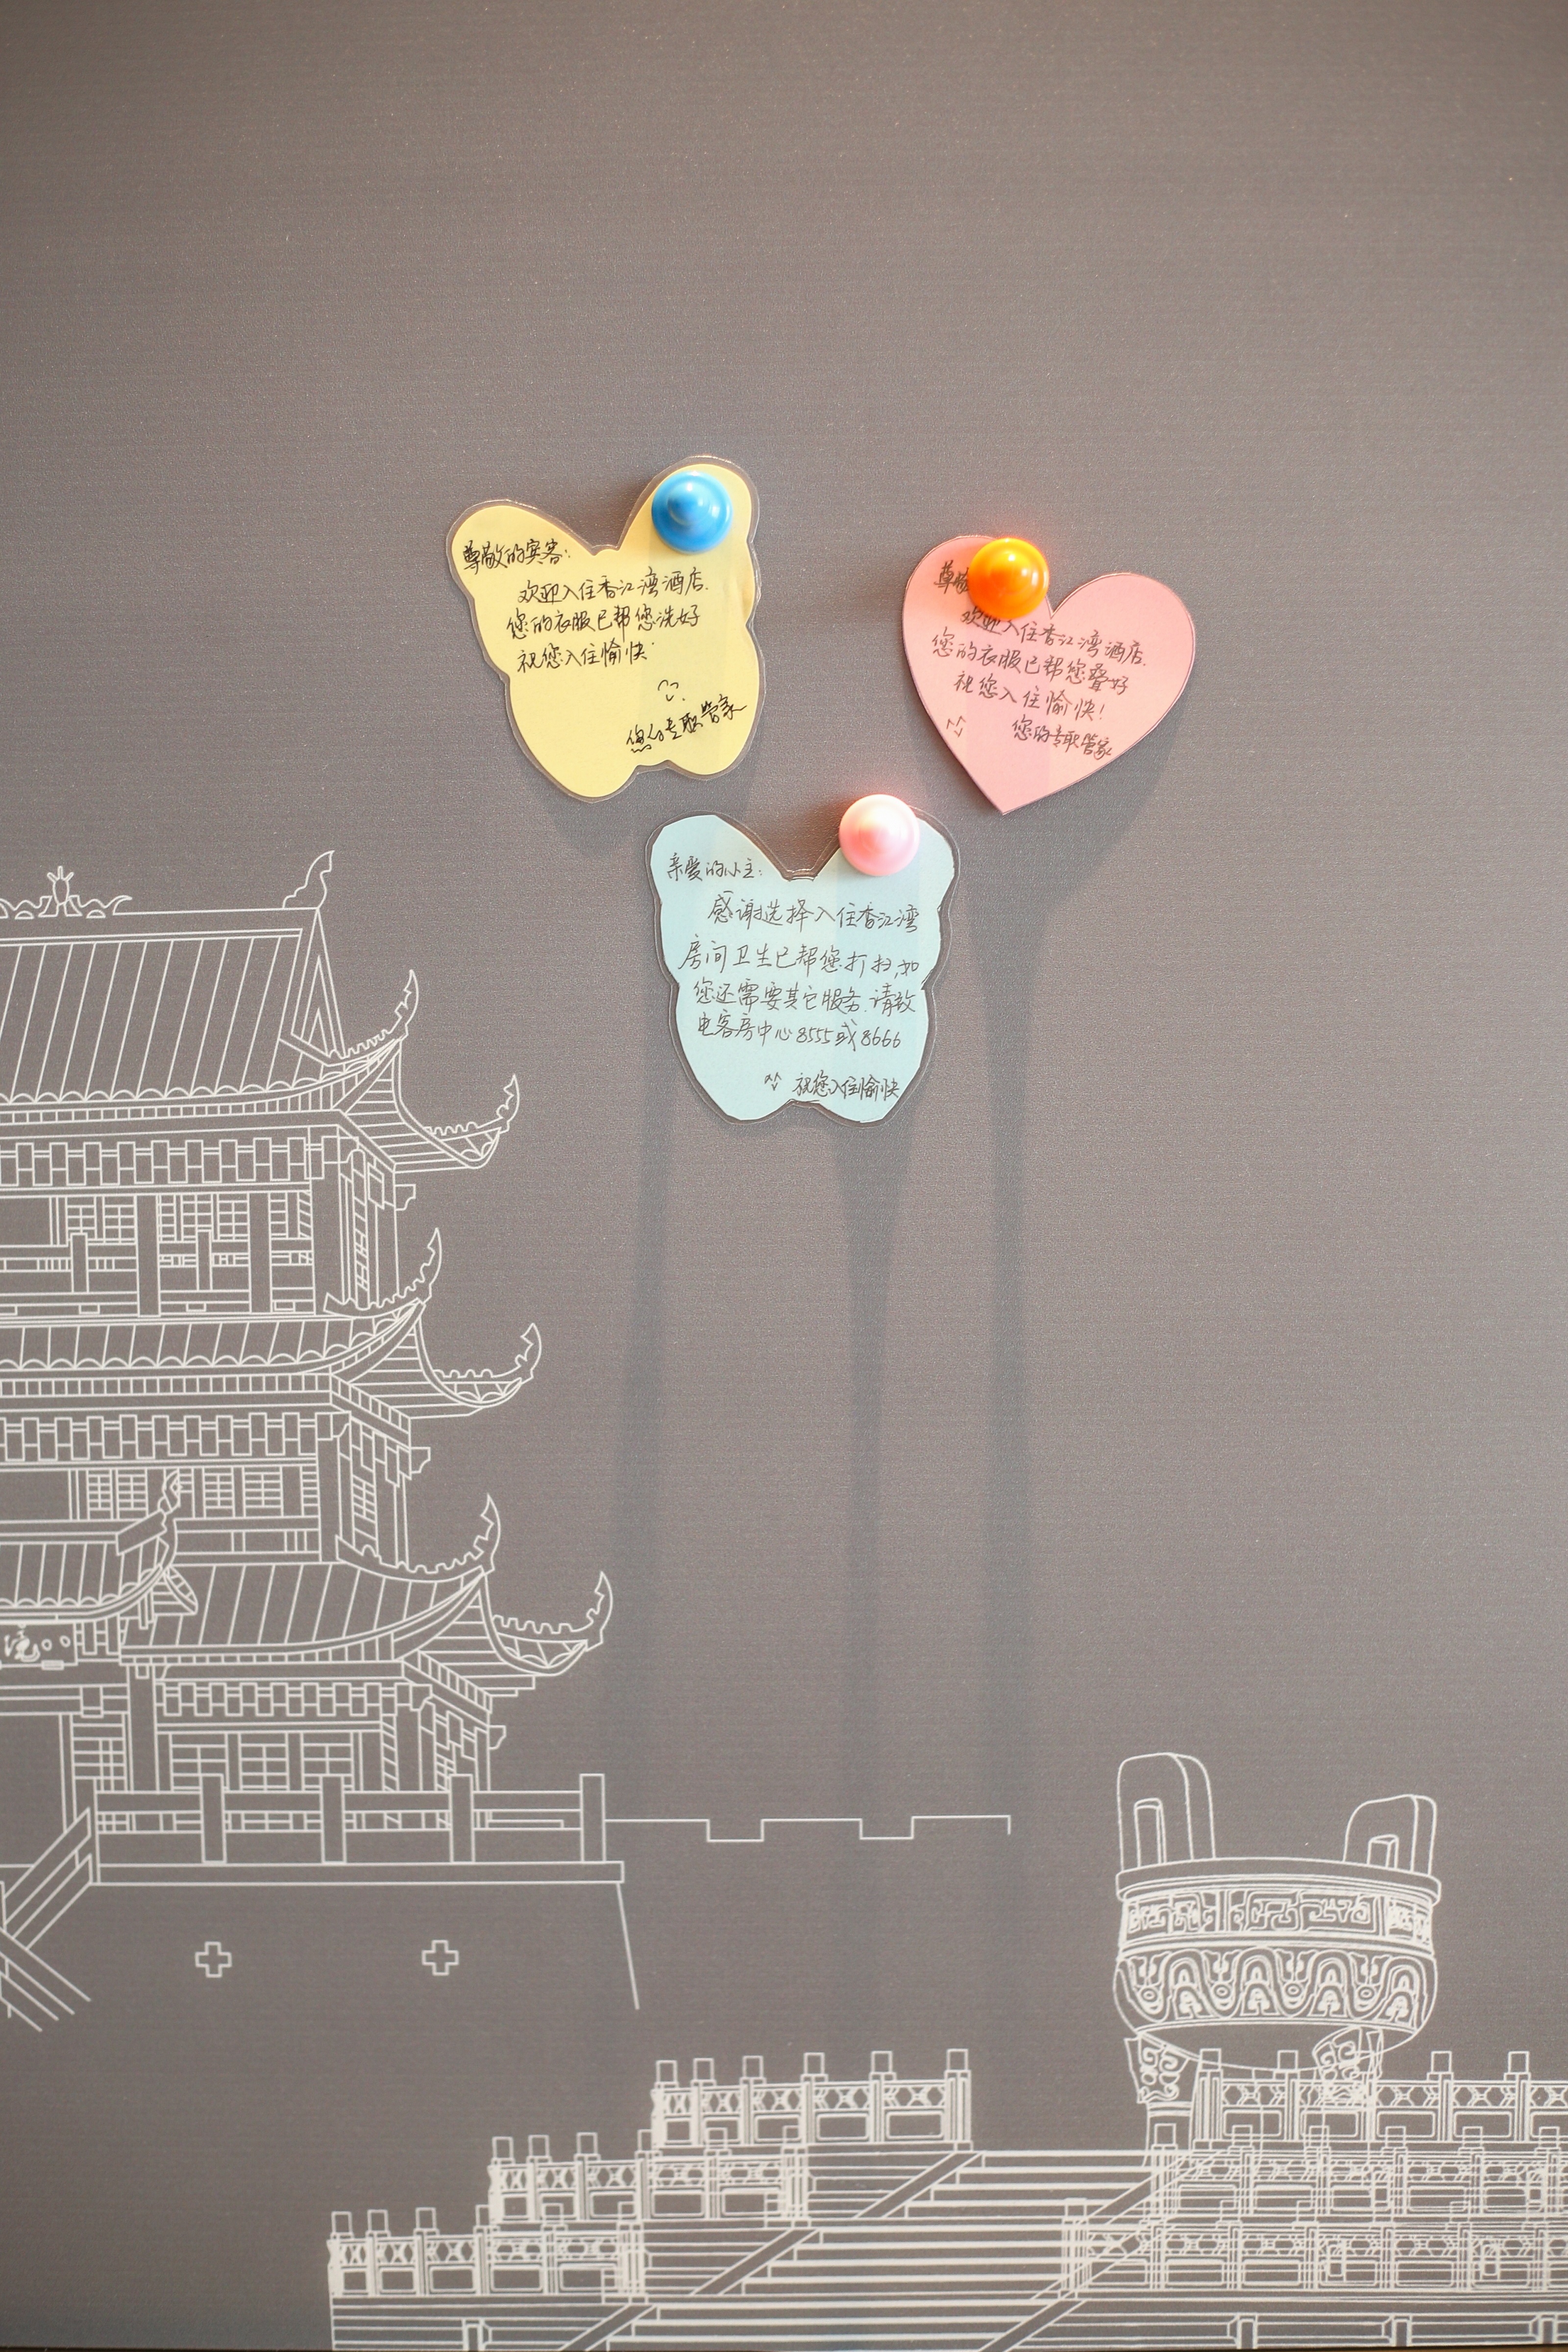 尊敬的宾客：
欢迎入住香江湾酒店.
您的衣服已帮您洗好
祝您入住愉快
您的专职管家
尊敬
欢迎入住香江湾酒店.
您的衣服已帮您叠好
祝您入住愉快！
您的专职管家
亲爱的小主：
感谢选择入住香江湾
房间卫生已帮您打扫,如
您还需要其它服务.请致
电客房中心8555或8666
祝您入住愉快
院